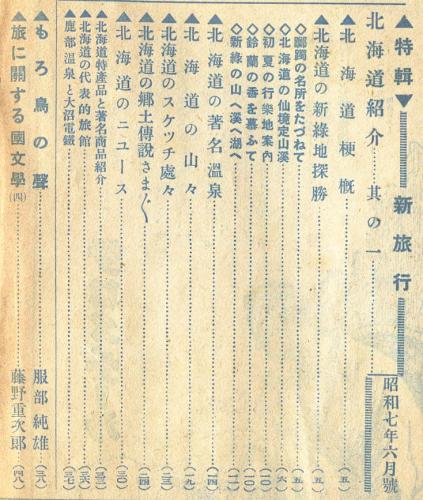 ▲特輯▼ 新旅行 昭和七年六月號
北海道紹介 其の一
▲北海道梗概 (五)
▲北海道の新綠地探勝 (五)
◇躑躅の名所をたづねて (五)
◇北海道の仙境定山溪 (六)
◇初夏の行樂地案內 (一〇)
◇鈴蘭の香を慕ふて (一〇)
◇新綠の山へ溪へ湖へ (一一)
▲北海道の著名溫泉 (一四)
▲北海道の山々 (一九)
▲北海道のスケッチ處々 (二三)
▲北海道の鄉土傳說さま〲 (二四)
▲北海道のニユース (三〇)
▲北海道特產品と著名商品紹介 (三三)
▲北海道の代表的旅館 (三六)
▲鹿部溫泉と大沼電鐵 (三七)
▲もろ鳥の聲 服部純雄 (三八)
▲旅に關する國文學(四) 藤野重次郞 (四八)